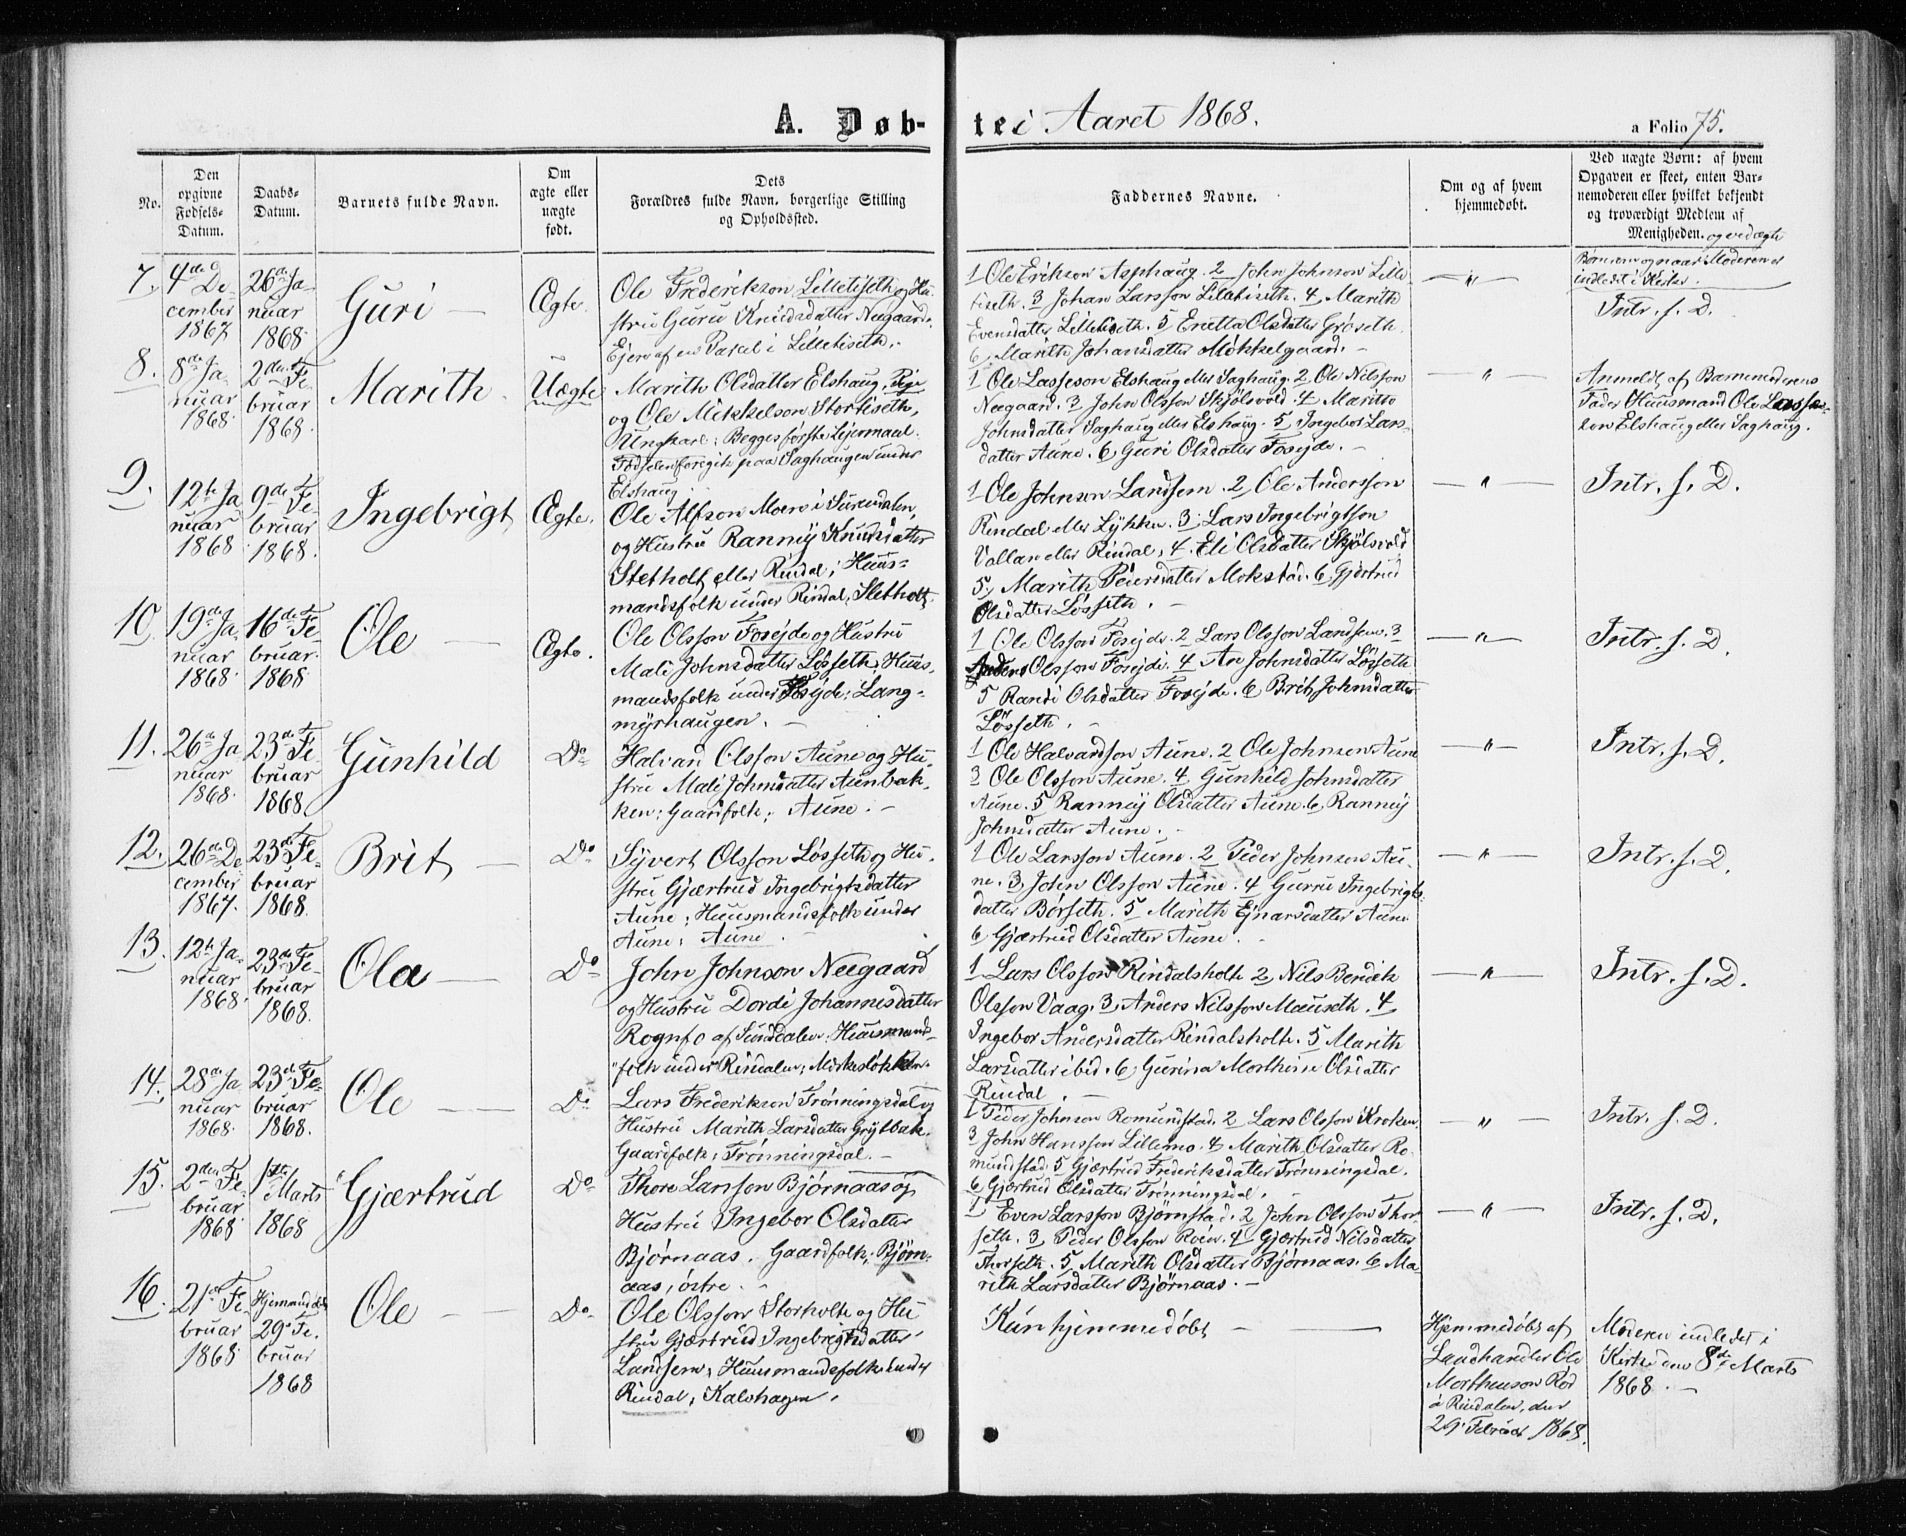 A. Døb-
te i Aaret 1868.
a Folio 75.
No.
Den opgivne Fødsels-Datum.
Daabs-Datum.
Barnets fulde Navn.
Om ægte eller uægte født.
Dets Forældres fulde Navn, borgerlige Stilling og Opholdssted.
Faddernes Navne.
Om og af hvem hjemmedøbt.
Ved uægte Børn: af hvem
Opgaven er skeet, enten Bar-
nemoderen eller hvilket bekjendt
og troværdigt Medlem af
Menigheden. og ved ægte
Børnene og naar Moderen er
indledet i Kirken.
7. 4de De-
cember
1867
26de Ja-
nuar
1868
Guri
Ægte
Ole Frederikson Lilletiseth og Hu-
stru Guru Knudsdatter Neegaard.
Ejere af en Parcel i Lilletiseth.
1 Ole Erikson Asphaug. 2 John Johnson Lille
tiseth. 3 Johan Larsson Lilletiseth. 4 Marith
Evensdatter Lilletiseth. 5 Eretta Olsdatter Grøseth.
6 Marith Johansdatter Mokkelgaard.
— " —
Intr. s. D.
8. 8de Ja-
nuar
1868
2den Fe-
bruar
1868
Marith
Uægte
Marith Olsdatter Elshaug, Pige
og Ole Mikkelson Stortiseth,
Ungkarl; Begges første Lejermaal.
Fødselen foregik paa Saghaugen under
Elshaug
1 Ole Lasseson Elshaug eller Saghaug. 2 Ole Nilsson
Neegaard. 3 John Olsson Skjølsvold. 4 Maritto
Johnsdatter Saghaug eller Elshaug. 5 Ingebor Lars-
datter Aune. 6 Guri Olsdatter Fosejde.
— " —
Anmeldt af Barnemoderens
Fader Huusmand Ole Lasse-
son Elshaug eller Saghaug.
9. 12te Ja
nuar
1868
9de Fe-
bruar
1868.
Ingebrigt
Ægte.
Ole Alfson Moere i Surendalen,
og Hustru Rannøÿ Knudsdatter
Stetholt eller Rindal; Huus-
mandsfolk under Rindal, Sletholt
1 Ole Johnson Landsem. 2 Ole Andersson
Rindal eller Lykken. 3 Lars Ingebrigtson
Vallan eller Rindal, 4. Eli Olsdatter Skjølsvold
5, Marith Pedersdatter Mokstad. 6 Gjertrud
Olsdatter Løsseth.
— " —
Intr. s. D.
10 19de Ja-
nuar
1868
16de Fe
bruar.
1868
Ole
Ægte.
Ole Olsson Fosejde og Hustru
Mali Johnsdatter Løsseth, Huus-
mandsfolk under Fosejde; Lang-
myrhaugen.
1 Ole Olsson Fosejde. 2 Lars Olsson Landsem. 3
Anders Olsson Fosejde. 4 Ane Johnsdatter Løsseth
5 Randi Olsdatter Fosejde. 6 Brit Johnsdatter
Løsseth.
— " —
Intr. s. D.
11. 26de Ja
nuar
1868
23de Fe
bruar
1868
Gunhild
Do
Halvard Olsson Aune og Hu-
stru Mali Johnsdatter Aunbak-
ken; Gaardfolk; Aune.
1 Ole Halvardson Aune. 2 Ole Johnsen Aune
3 Ole Olsson Aune. 4 Gunhild Johnsdatter
Aune. 5 Rannøÿ Olsdatter Aune. 6 Rannøÿ
Johnsdatter Aune.
— " —
Intr. s. D.
12. 26de De
cember
1867.
23de Fe-
bruar
1868.
Brit
Do
Syvert Olsson Løsseth og Hu-
stru Gjærtrud Ingebrigtsdatter
Aune; Huusmandsfolk under
Aune; Aune.
1 Ole Larsson Aune. 2 Peder Johnsen Au-
ne. 3 John Olsson Aune. 4 Gurru Ingebrigts
datter Børseth. 5 Marith Ejnarsdatter Aune
6 Gjærtrud Olsdatter Aune.
— " —
Intr. s. D.
13. 12te Ja-
nuar
1868
23de Fe-
bruar
1868.
Ola
Do
John Johnson Neegaard
og Hustru Dordi Johannesdatter
Rognfo af Sundalen, Huusmands-
folk under Rindalen; Mørkesløkken.
1 Lars Olsson Rindalsholt 2 Nils Bendik
Olsson Vaag. 3, Anders Nilsson Mauseth. 4
Ingebor Andersdatter Rindalsholt. 5 Marith
Larsdatter ibid. 6 Gurina Morthine Olsdatter
Rindal.
— " —
Intr. s. D.
14. 28de Ja
nuar
1868
23de Fe-
bruar
1868.
Ole
Do
Lars Frederikson Trønningsdal og
Hustru Marith Larsdatter Grytbak.
Gaardfolk; Trønningsdal.
1 Peder Johnson Romundstad. 2 Lars Olsson Kroken
3 John Hansson Lillemo. 4 Marith Olsdatter Ro-
mundstad. 5 Gjærtrud Frederiksdatter Trønningsdal.
6 Gjærtrud Olsdatter Trønningsdal.
— " —
Intr. s. D.
15. 2den Fe-
bruar
1868
1ste
Marts
1868
Gjærtrud
Do
Thore Larsson Bjørnaas og
Hustru Ingebor Olsdatter
Bjørnaas. Gaardfolk; Bjørn-
aas, østre.
1 Even Larsson Bjørnstad. 2 John Olsson Thor
seth. 3 Peder Olsson Roen. 4 Gjærtrud Nilsdatter
Thorseth. 5 Marith Olsdatter Bjørnaas. 6 Ma-
rith Larsdatter Bjørnaas.
— " —
Intr. s. D.
16. 21de Fe
bruar
1868
Hjemmedøbt
29de Fe-
bruar
1868
Ole
Do
Ole Olsson Storholt og Hu
stru Gjærtrud Ingebrigtsdatter
Landsem; Huusmandsfolk under
Rindal; Kalvhagen.
Kun hjemmedøbt
Hjemmedøbt af
Landhandler Ole
Morthenson Rød
i Rindalen, den
29de Februar 1868.
Moderen indledet i
Kirke den 8de Marts
1868.